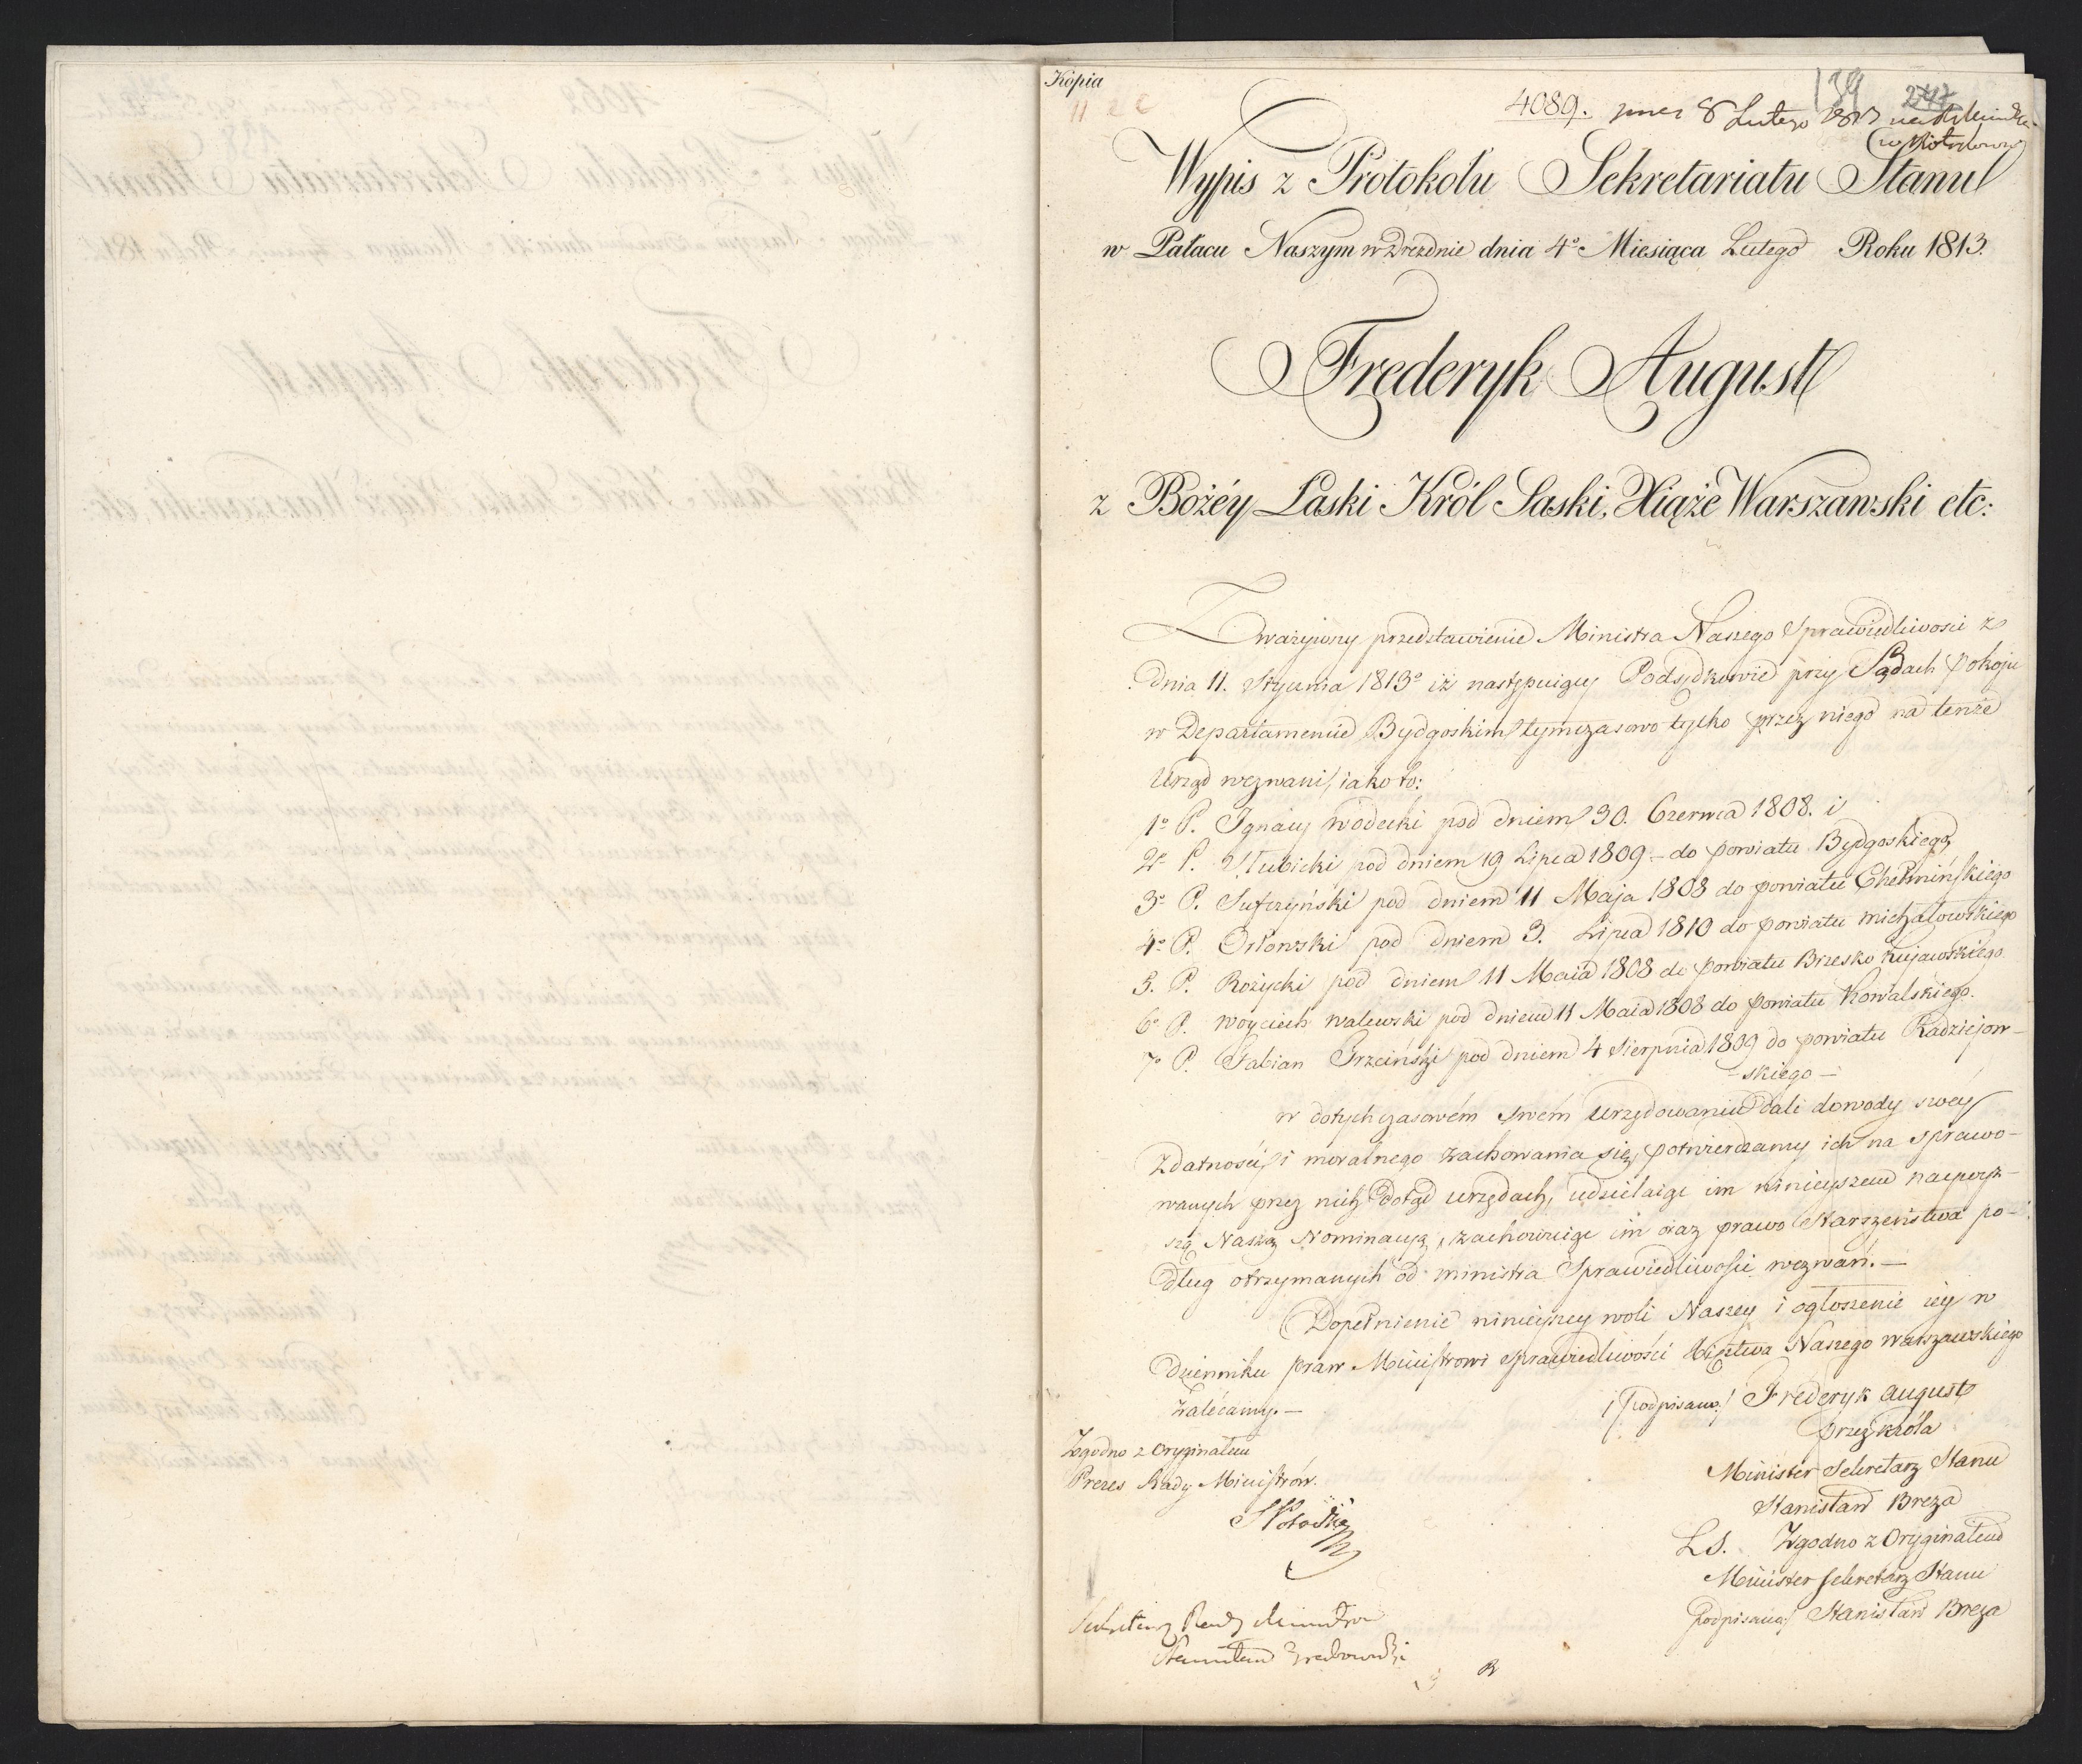 Kopia
139 2747
4089. pnes 8 Lutego 1813
Wypis z Protokołu Sekretariatu Stanu
w Pałacu Naszym w Dreznie dnia 4º Miesiąca Lutego Roku 1813.
Frederyk August
z Bożéy Łaski Król Saski, Xiąże Warszawski etc:
Zważywszy przedstawienie Ministra Naszego Sprawiedliwosci z
dnia 11. Stycznia 1813º iż następuiący Podsędkowie przy Sądach Pokoju
w Departamencie Bydgoskim tymczasowo tylko przez niego na tenże
Urząd wezwani, iako to:
1º P. Ignacy Wodecki pod dniem 30. Czerwca 1808. i
2º P. Słubicki pod dniem 19 Lipca 1809 - do powiatu Bydgoskiego
3º P. Sufczyński pod dniem 11 Maja 1808 do powiatu Chełmińskiego
4º P. Orłowski pod dniem 3. Lipca 1810 do powiatu Michałowskiego
5. P. Rożycki pod dniem 11 Maia 1808 do powiatu Brzesko Kujawskiego
6º P. Woyciech Walewski pod dniem 11 Maia 1808 do powiatu Kowalskiego.
7º P. Fabian Trzciński pod dniem 4 Sierpnia 1809 do powiatu Radziejow-
-skiego -
w dotychczasowém swém Urzędowaniu dali dowody swéy
Zdatności i moralnego zachowania się, potwierdzamy ich na sprawo-
wanych przez nich dotąd urzędach, udzielaiąc im ninieyszem naywyż-
szą Naszą Nominacyą, zachowuiąc im oraz prawo Starszeństwa po-
dług otrzymanych od Ministra Sprawiedliwości wezwań. —
Dopełnienie ninieyszey woli Naszey i ogłoszenie iey w
Dzienniku praw Ministrowi Sprawiedliwości Xięstwa Naszego Warszawskiego
zalécamy. —
/podpisano/ Frederyk August
przez Króla
Minister Sekretarz Stanu
Stanisław Breza
LS. Zgodno z Oryginałem
Minister Sekretarz Stanu
podpisano/ Stanisław Breza
Zgodno z Oryginałem
Prezes Rady Ministrów.
S Potocki
Sekretarz Rady Ministrów
Stanisław Grabowski